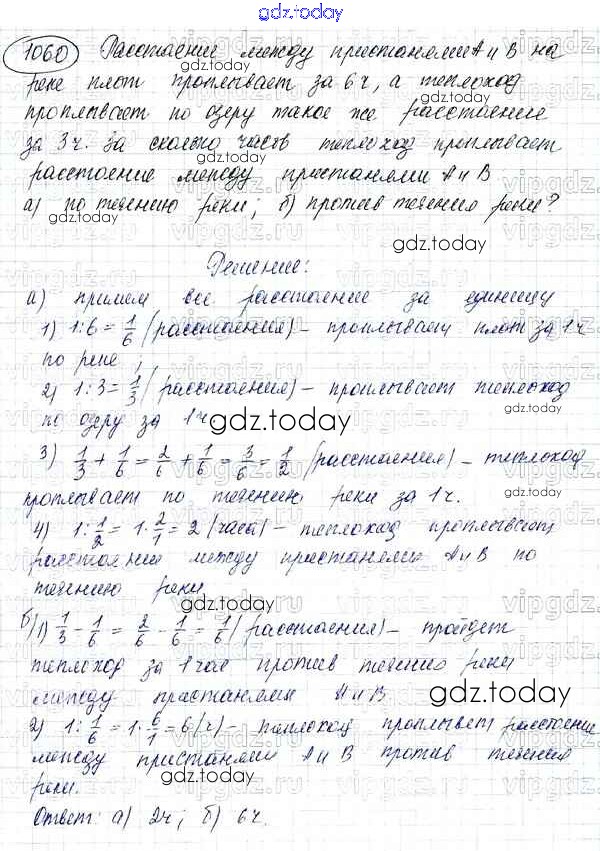 gdz.today
1060 Расстояние между пристанями А и В на
реке плот проплывает за 6 ч, а теплоход
проплывает по озеру такое же расстояние
за 3 ч. За сколько часов теплоход проплывает
расстояние между пристанями А и В
а) по течению реки; б) против течения реки?
Решение:
а) примем все расстояние за единицу
1) 1:6 = 1/6 (расстояния) – проплывает плот за 1 ч
по реке;
2) 1:3 = 1/3 (расстояния) – проплывает теплоход
по озеру за 1 ч
3) 1/3 + 1/6 = 2/6 + 1/6 = 3/6 = 1/2 (расстояния) – теплоход
проплывает по течению реки за 1 ч.
4) 1 : 1/2 = 1 · 2/1 = 2 (часа) – теплоход проплывает
расстояние между пристанями А и В по
течению реки
б) 1) 1/3 - 1/6 = 2/6 - 1/6 = 1/6 (расстояния) – пройдет
теплоход за 1 час против течения реки
между пристанями А и В.
2) 1 : 1/6 = 1 · 6/1 = 6 (ч) – теплоход проплывет расстояние
между пристанями А и В против течения
реки.
Ответ: а) 2ч; б) 6ч.
gdz.today